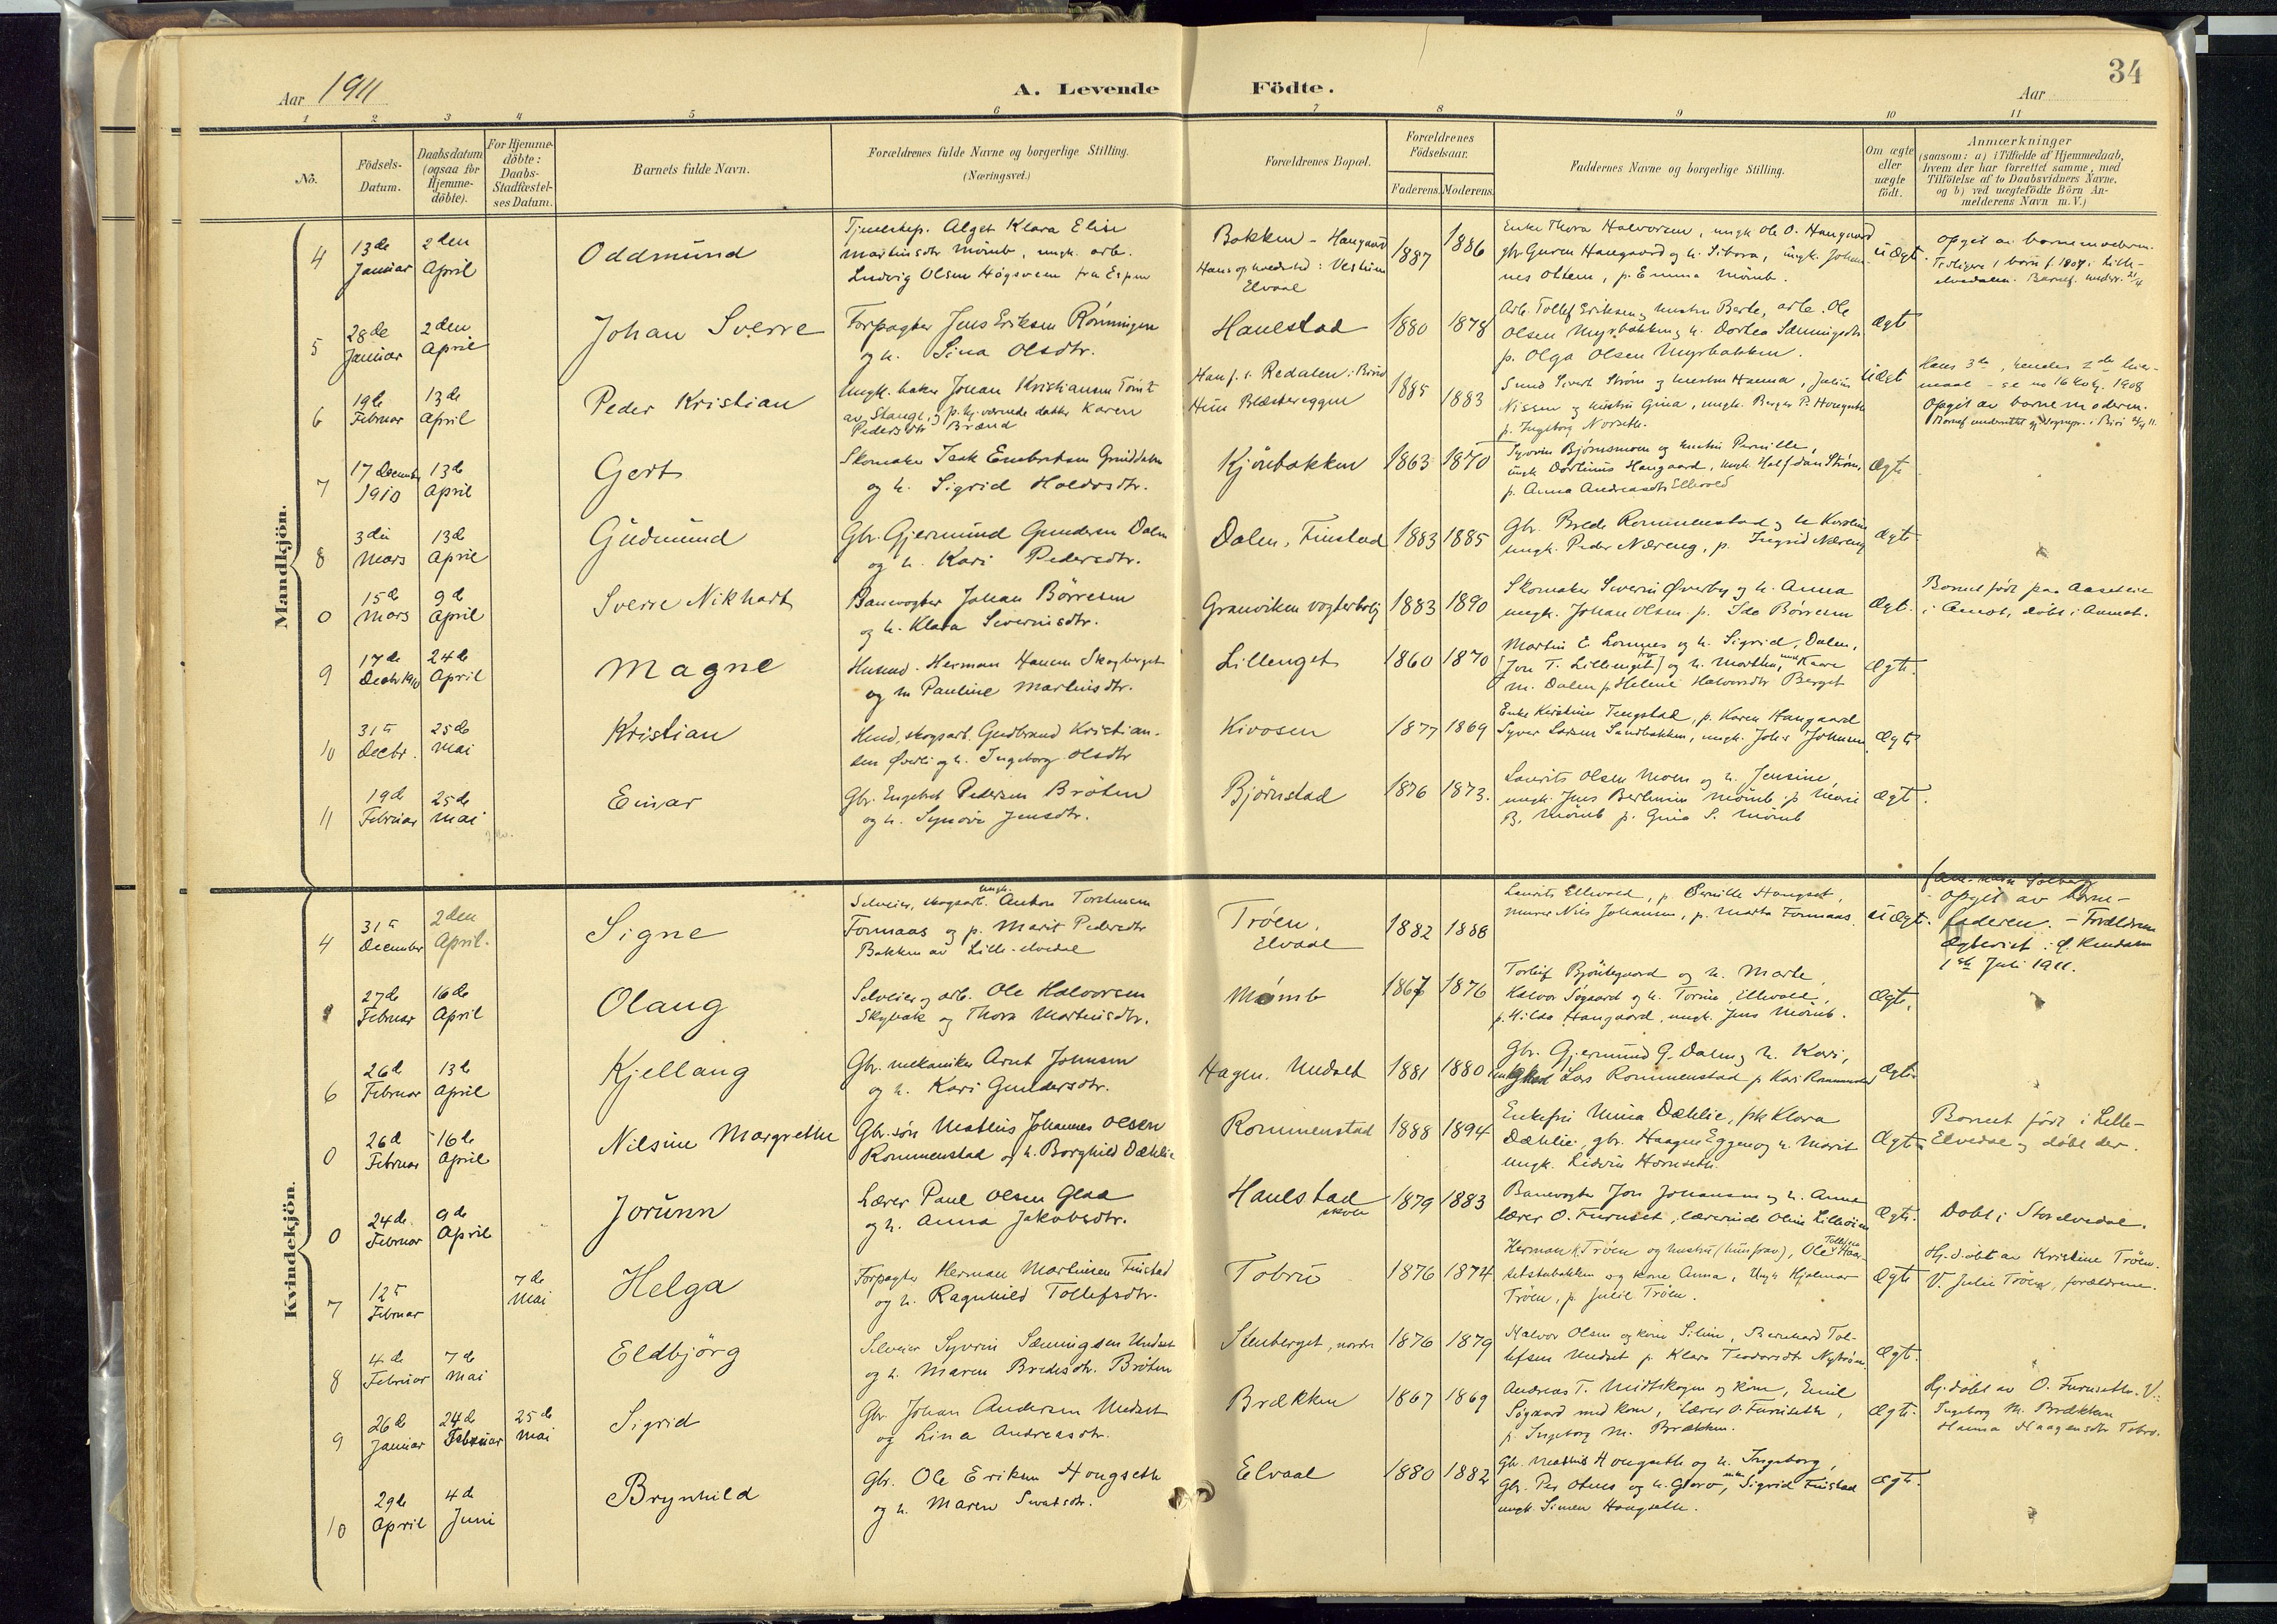 34
Aar 1911
A. Levende Födte.
Aar
1 2 3 4 5 6 7 8 9 10 11
No.
Födsels-Datum.
Daabsdatum (ogsaa for Hjemme-döbte).
For Hjemme-döbte: Daabs-Stadfæstel-ses Datum.
Barnets fulde Navn.
Forældrenes fulde Navne og borgerlige Stilling. (Næringsvei.)
Forældrenes Bopæl.
Forældrenes Födselsaar.
Faderens. Moderens.
Faddernes Navne og borgerlige Stilling.
Om ægte eller uægte födt.
Anmærkninger
(saasom: a) i Tilfælde af Hjemmedaab,
hvem der har forrettet samme, med
Tilföielse af to Daabsvidners Navne.
og b) ved uægtefödte Börn An-
melderens Navn m. V.)
Mandkjön.
4 13de Januar 2den April Oddmund
Klara Elise
Martinsdtr Mömb, ungk. arb.
Ludvig Olsen Högsveen fra Espen
Bakken - Haugaard
Elvaal
1887 1886
Enke Thora Halvorsen, ungk Ole O. Haugaard
p. Emma Mömb.
uægt.
opgit av barnemoderen.
5 28de Januar 2den April Johan Sverre
Forpagter Jens Eriksen Rönningen
og h. Sina Olsdtr.
Hanestad 1880 1878
Arb. Tollef Eriksen og hustru Berte, arb. Ole
Olsen Myrbakken og h. Dortea
p. Olga Olsen Myrbakken.
ægt
6 19de Februar 13de April Peder Kristian
Ungk. baker Johan Kristiansen
av Stange, og p. hjemværende datter Karen
Pedersdtr Brænd
Han f. i Redalen i Biri
Hun Blæstereggen
1885 1883
Nissen og hustru Gina, ungk. Berger P. Hougseth
p. Ingeborg Norseth.
uægt
Opgit av barnemoderen.
7 17 Decembr 1910 13de April Gert
Skomaker Isak Embretsen Grinddalen
og h. Sigrid Haldosdtr.
Kjönbakken 1863 1870
Syverin Björnsmoen og hustru Pernille,
ungk Dortinus Haugaard, ungk. Halfdan Ström,
p. Anna Andreasdtr Ellevold
ægte
8 3die Mars 13de April Gudmund
Gbr. Gjermund Gundersen Dalen
og h. Kari Pedersdtr.
Dalen, Finstad 1883 1885
Gbr. Brede Rommenstad og h Karoline
ungk. Peder Næreng, p. Ingrid Næreng
ægte
0 15de Mars 9de April Sverre Nikhart
Banevogter Johan Börresen
og h. Klara Severinsdtr.
Granviken vogterbolig 1883 1890
Skomaker Severin Øverby og h. Anna
ungk. Johan Olsen p. Ida Börresen
ægt.
Barnet född paa Aasta
i Aamot, döbt i Aamot.
9 17de Decbr 1910 24de April Magne
Husmd. Herman Hansen Skogberget
og h Pauline Martinsdtr.
Lillenget 1860 1870
Martin E Lomnes og h. Sigrid, Dalen,
[Jon T. Lillenget] og h. Marthea, Kaare
M. Dalen p Helene Halvorsdtr Berget
ægte.
10 31te Decbr. 25de Mai Kristian
Husmd, skogsarb. Gudbrand Kristian-
sen Øverli og h. Ingeborg Olsdtr
Kivosen 1877 1869
Enke Kirstine Tingstad, p. Karen Haugaard
Syver Larsen Sandbakken, ungk. Johs Johnsen
ægte
11 19de Februar 25de Mai Einar
Gbr. Engebret Pedersen Bröten
og h. Synöve Jensdtr.
Björnstad 1876 1873.
Laurits Olsen Moen og h. Jensine,
ungk. Jens Bertinius Mömb p Marie
B. Mömb p. Gina S. Mömb
ægt.
Kvindekjön.
4 31te December 2den April. Signe
Selveier, skogsarb. ungk. Anton Torstensen
Formaas og p. Marit Pedersdtr
Bakken av Lille-elvedal
Tröen, Elvaal
1882 1888
Laurits Ellevold, p. Pernille Hougset,
murer Nils Johansen, p. Marta Formaas.
uægt.
opgit av barne-
faderen. - Forældrene
ægteviet i Ø. Rendalen
1ste Juli 1911.
27de Februar 16de April Olaug
Selveier og arb. Ole Halvorsen
Skybak og Thora Martinsdtr.
Mömb 1867 1876
Torleif Björtegaard og h. Marte,
Halvor Søgaard og h. Torine, Ellevold,
p. Hilda Haugaard, ungk. Jens Mömb.
ægte.
6 26de Februar 13de April Kjellaug
Gbr. mekaniker Arnt Johnsen
og h. Kari Gundersdtr.
Hagen. Undset 1881 1880
Gbr. Gjermund G. Dalen og h. Kari,
Lars Rommenstad p Kari Rommenstad
ægte
0 26de Februar 16de April Nilsine Margrethe
Gbr. sön Mathius Johannes Olsen
Rommenstad og h. Borghild Dæhlie
Rommenstad 1888 1894
Enkefru Mina Dæhlie, frk Klara
Dæhlie, gbr. Haagen Eggen og h. Marit
ungk. Lidvin Hornseth.
ægte
Barnet född i Lille-
Elvedal og döbt der.
0 24de Februar 9de April Jorunn
Lærer Paul Olsen Glaa
og h. Anna Jakobsdtr.
Hanestad skole 1879 1883
Banevogter Jon Johansen og h. Anne
lærer O. Furuset, lærerinde Oline Lilleöien
ægte.
Döbt i Storelvedal.
7 12te Februar 7de Mai Helga
Forpagter Herman Martinsen Finstad
og h. Ragnhild Tollefsdtr.
Tobro 1876 1874
Herman K. Tröen og hustru (husfrau), Ole Tollefsen Haar-
setstubakken og kone Anna, Ungk Hjalmar
Tröen, p. Julie Tröen.
ægte
Hj. döbt av Kristine Tröen.
V. Julie Tröen, forældrene.
8 4de Februar 7de Mai Eldbjörg
Selveier Syverin Sæmingsen Undset
og h. Maren Bredesdtr. Bröten
Stenberget, nordre 1876 1879
Halvor Olsen og kone Siline, Bernhard Tol-
lefsen Undset p. Klara Teodorsdtr Nybröten
ægt.
9 26de Januar 24de Februar 25de Mai Sigrid
Gbr Johan Andersen Undset
og Lina Andreasdtr.
Brækken 1867 1869
Andreas T. Midtskogen og kone, Emil
Søgaard med kone, Lærer O. Furuseth,
p. Ingeborg M. Brækken.
ægte.
Hj. döbt av O. Furuseth. V.:
Ingeborg M. Brækken
Hanna Haagensdtr Tobro.
10 29de April 4de Juni Brynhild
Gbr. Ole Eriksen Hougseth
og h. Maren Sivertsdtr.
Elvaal 1880 1882
Gbr. Mathius Hougseth og h. Ingeborg,
Gbr. Per Otnes og h. Gloro, Sigrid Finstad
ungk. Simen Hougseth.
ægte.